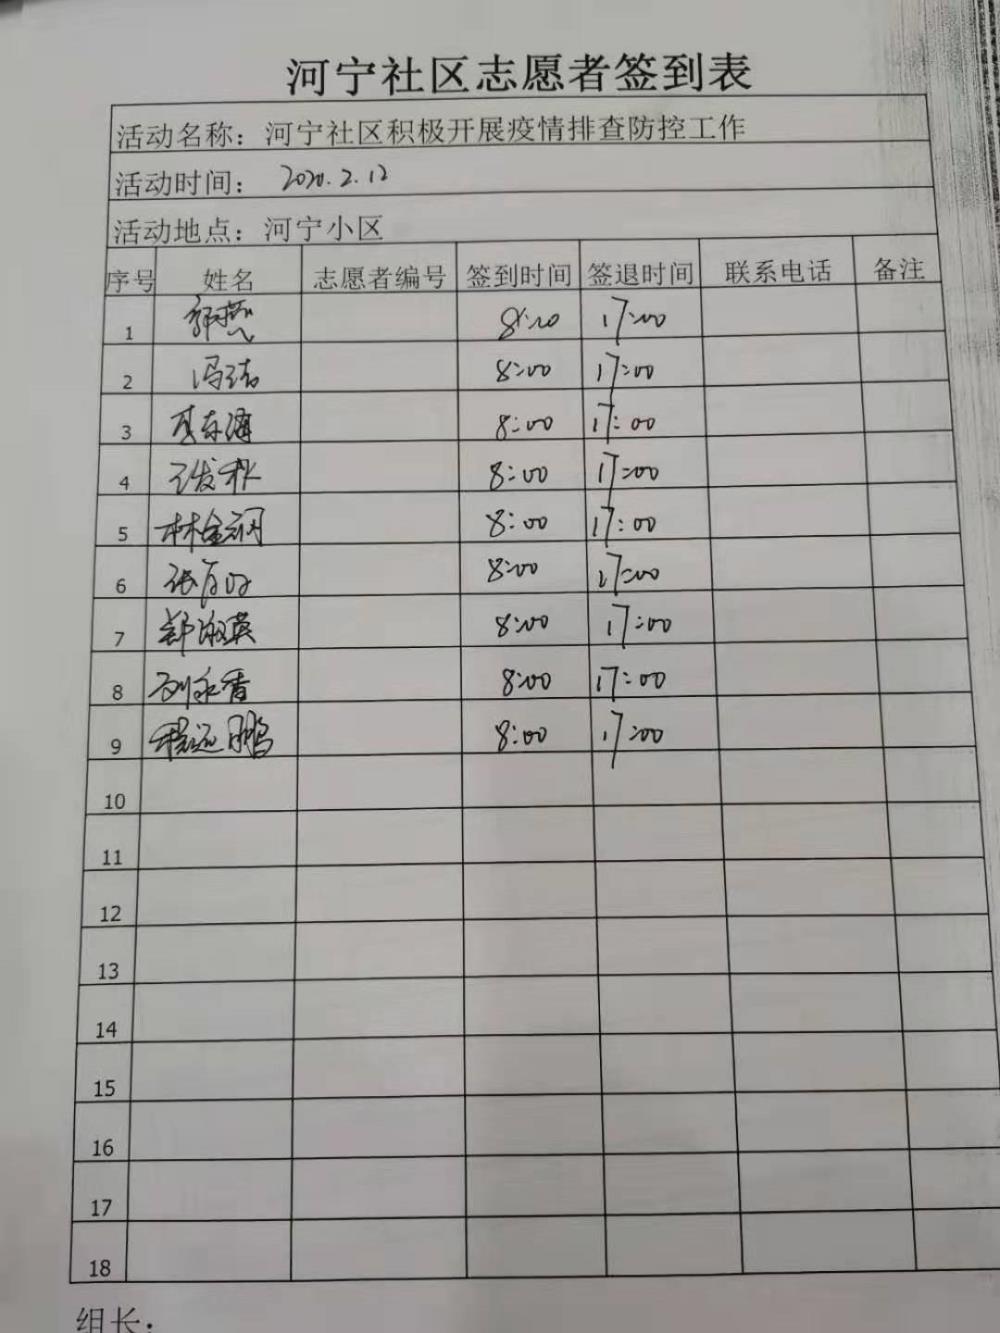 河宁社区志愿者签到表
活动名称：河宁社区积极开展疫情排查防控工作
活动时间： 2020.2.12
活动地点：河宁小区
序号 姓名 志愿者编号 签到时间 签退时间 联系电话 备注
1 17:00
2 冯洁 8:00 17:00
3 8:00 17:00
4 8:00 17:00
5 8:00 17:00
6 8:00 17:00
7 郭淑英 8:00 17:00
8 刘永香 8:00 17:00
9 程远鹏 8:00 17:00
10
11
12
13
14
15
16
17
18
组长：